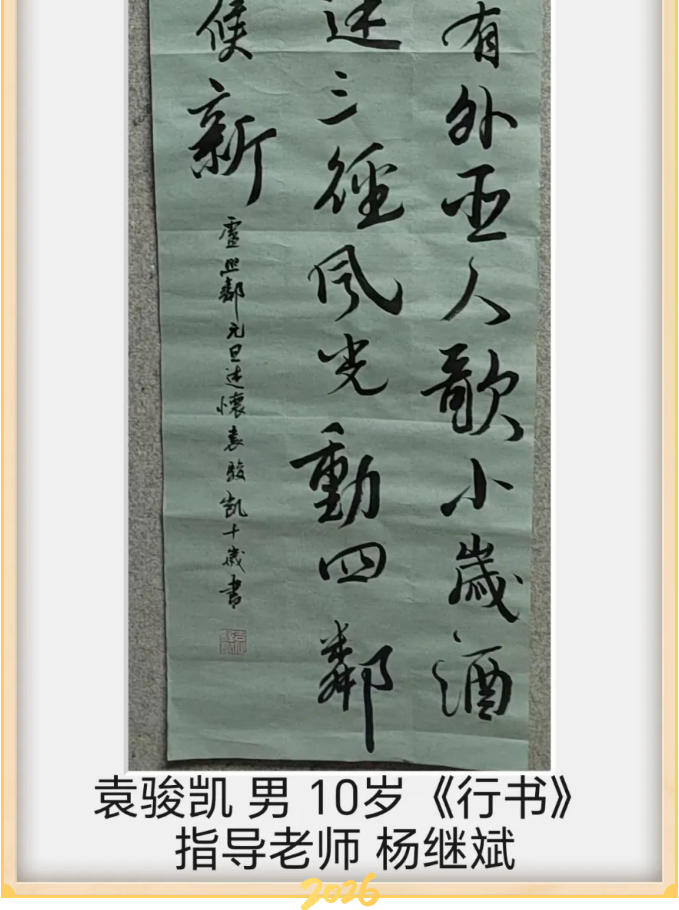 有外臣人歌小歲酒
迷三徑風光動四鄰
候新
盧照鄰元旦述懷袁駿凱十歲書
袁骏凯 男 10岁《行书》
指导老师 杨继斌
2026